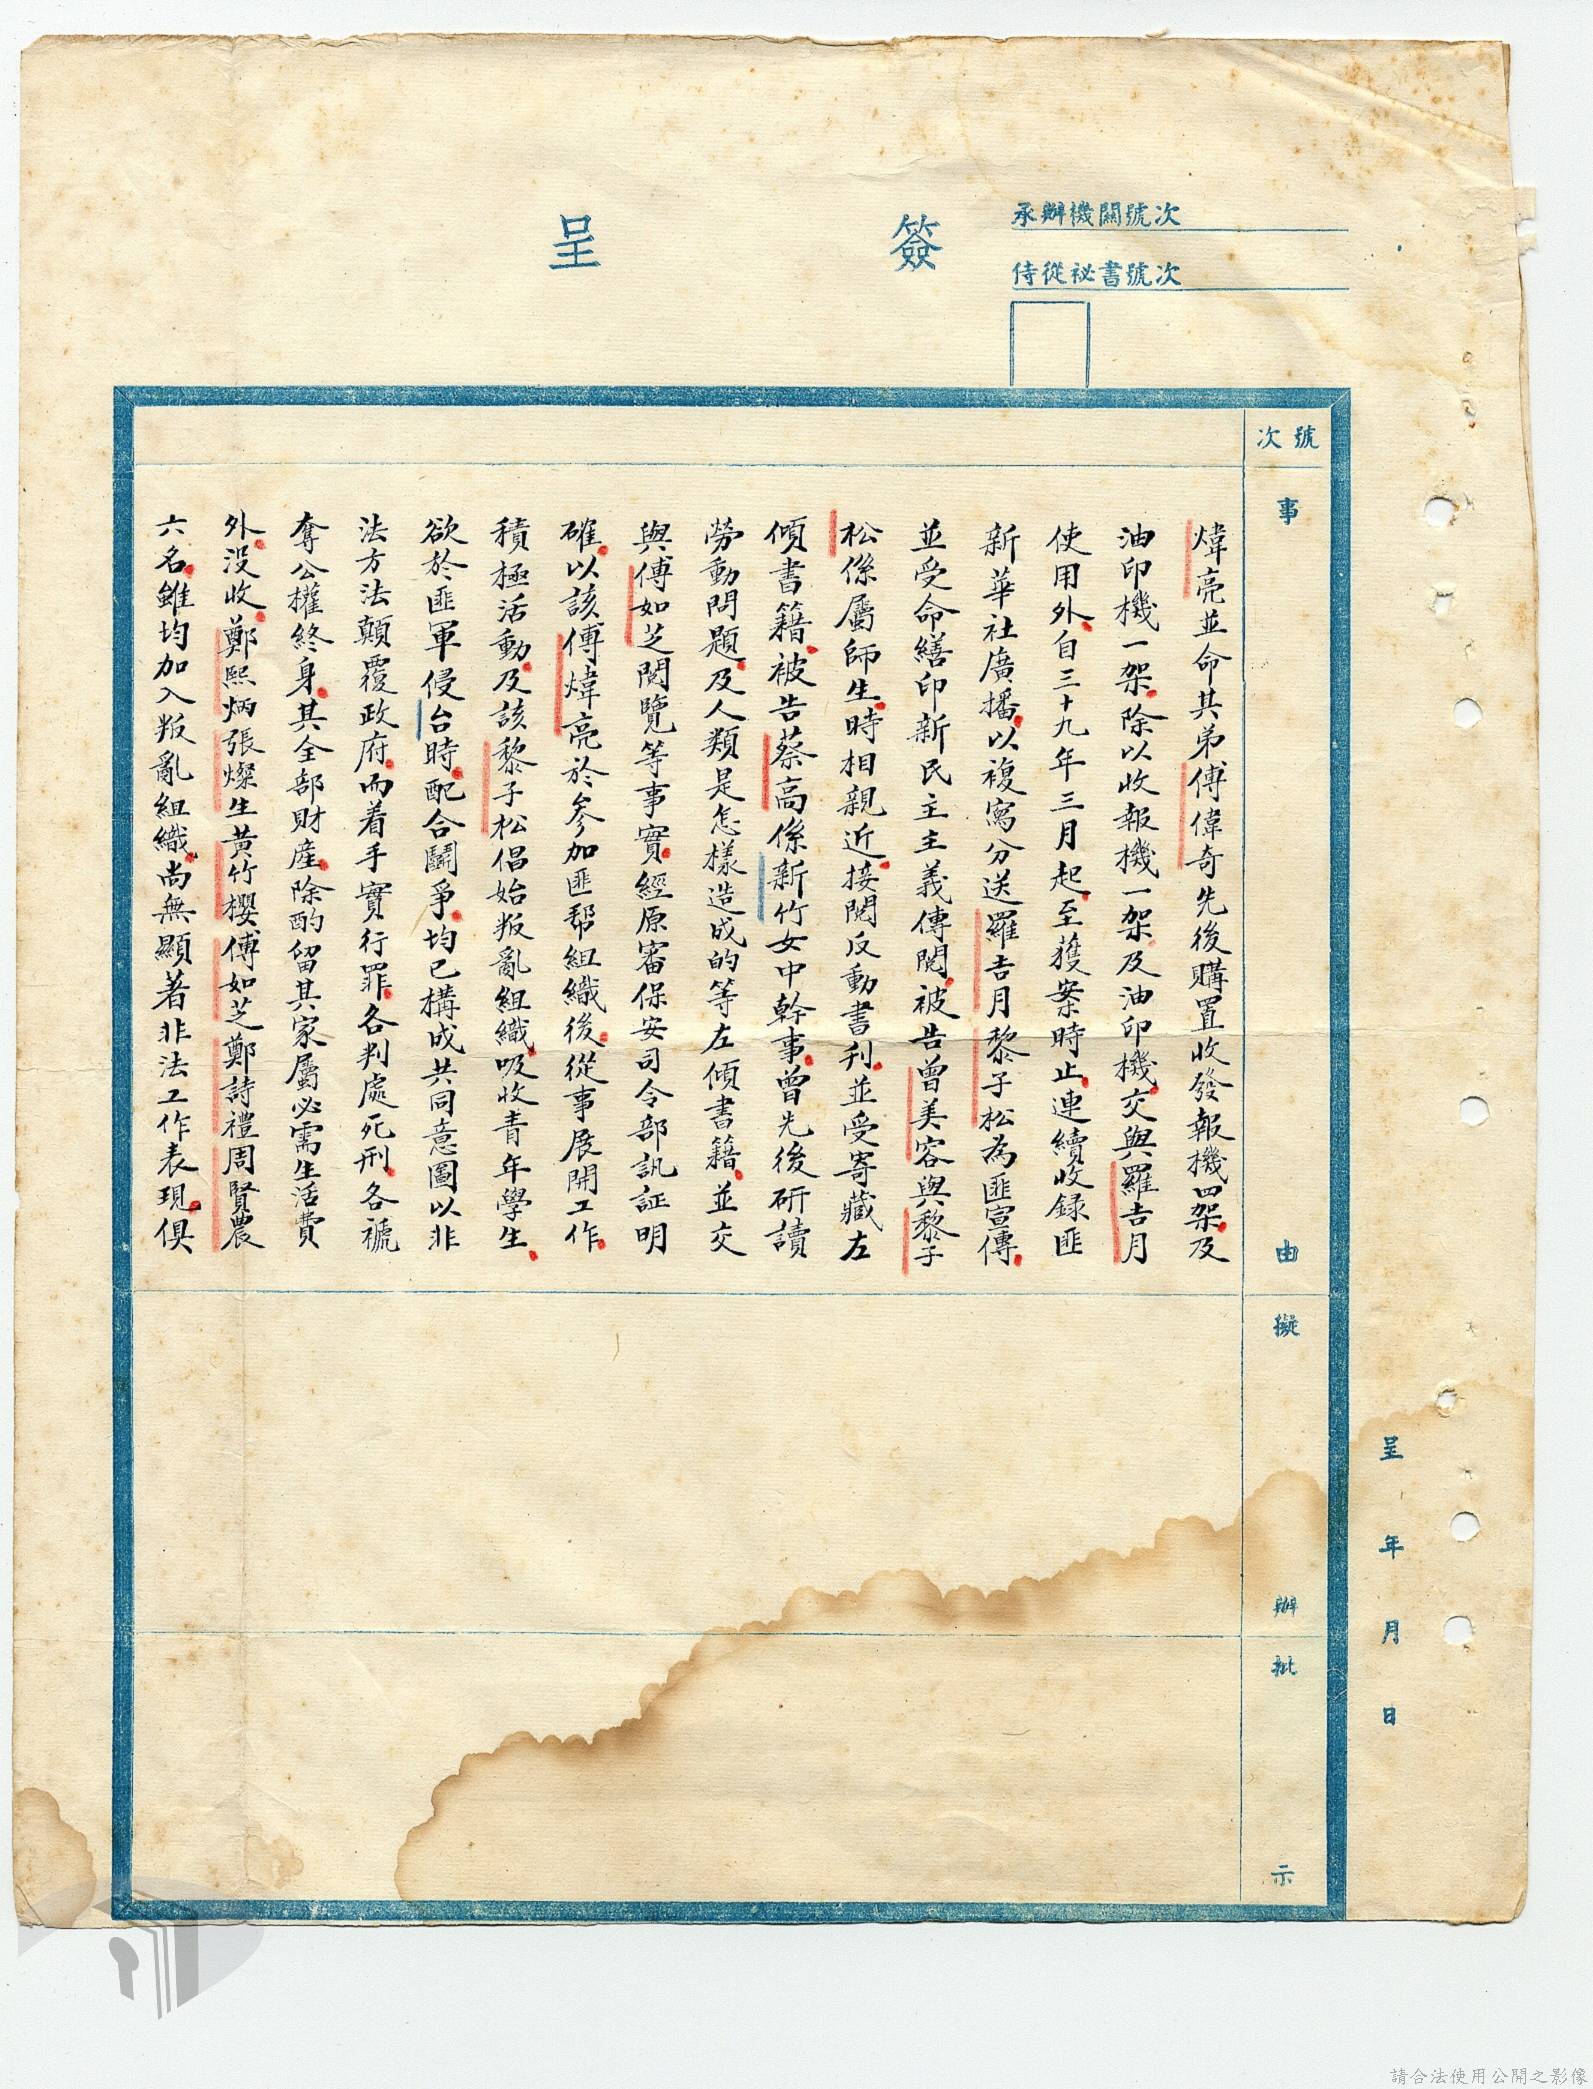 簽呈
承辦機關號次
侍從祕書號次
號次
事由
擬辦
批示
呈 年 月 日
煒亮並命其弟傅偉奇先後購置收發報機四架及
油印機一架除以收報機一架及油印機交與羅吉月
使用外自三十九年三月起至獲案時止連續收錄匪
新華社廣播以複寫分送羅吉月黎子松為匪宣傳
並受命繕印新民主主義傳閱被告曾美容與黎子
松係屬師生時相親近接閱反動書刊並受寄藏左
傾書籍被告蔡高係新竹女中幹事曾先後研讀
勞動問題及人類是怎樣造成的等左傾書籍並交
與傅如芝閱覽等事實經原審保安司令部訊証明
確以該傅煒亮於參加匪幫組織後從事展開工作
積極活動及該黎子松倡始叛亂組織吸收青年學生
欲於匪軍侵台時配合鬪爭均已構成共同意圖以非
法方法顛覆政府而着手實行罪各判處死刑各褫
奪公權終身其全部財產除酌留其家屬必需生活費
外沒收鄭熙炳張燦生黃竹櫻傅如芝鄭詩禮周賢農
六名雖均加入叛亂組織尚無顯著非法工作表現俱
請合法使用公開之影像